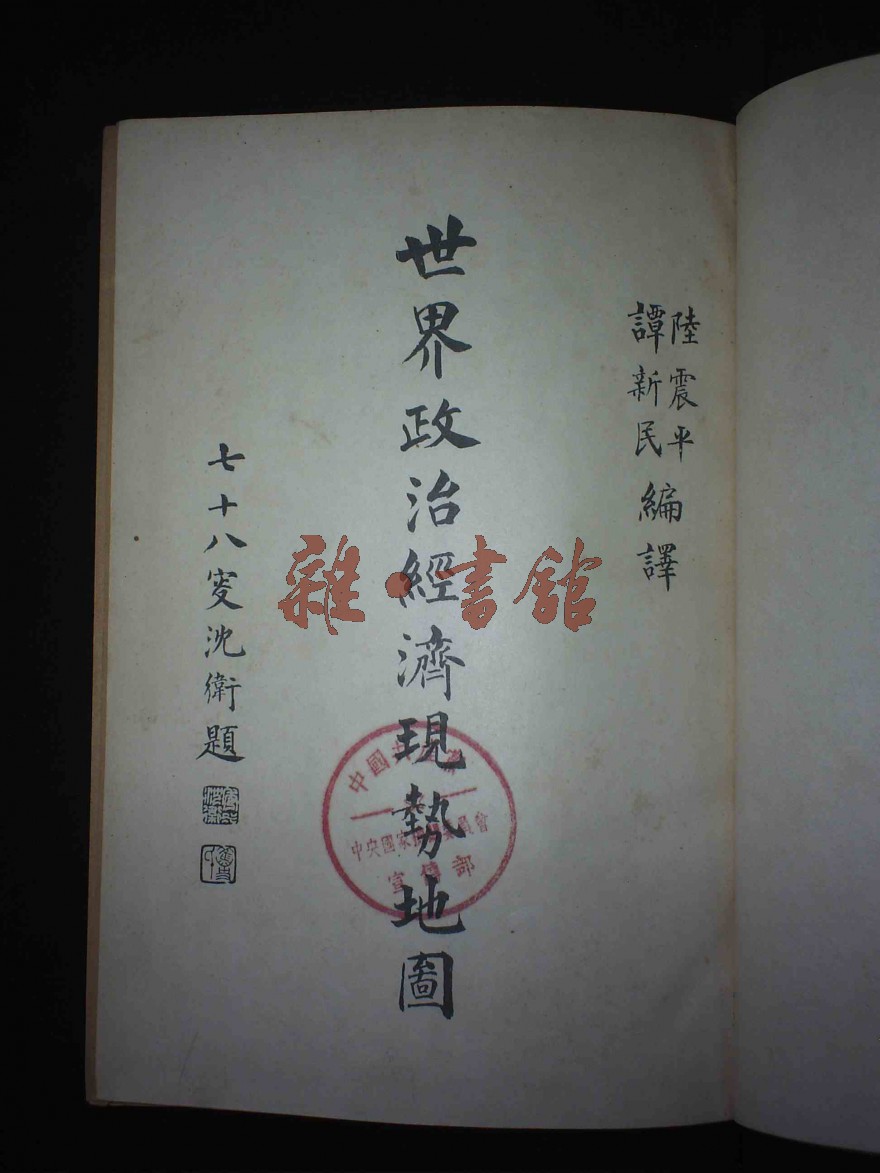 陸震平
譚新民
編譯
世界政治經濟現勢地圖
七十八叜沈衛題
雜·書館
中國共產黨
中央國家機關委員會
宣傳部